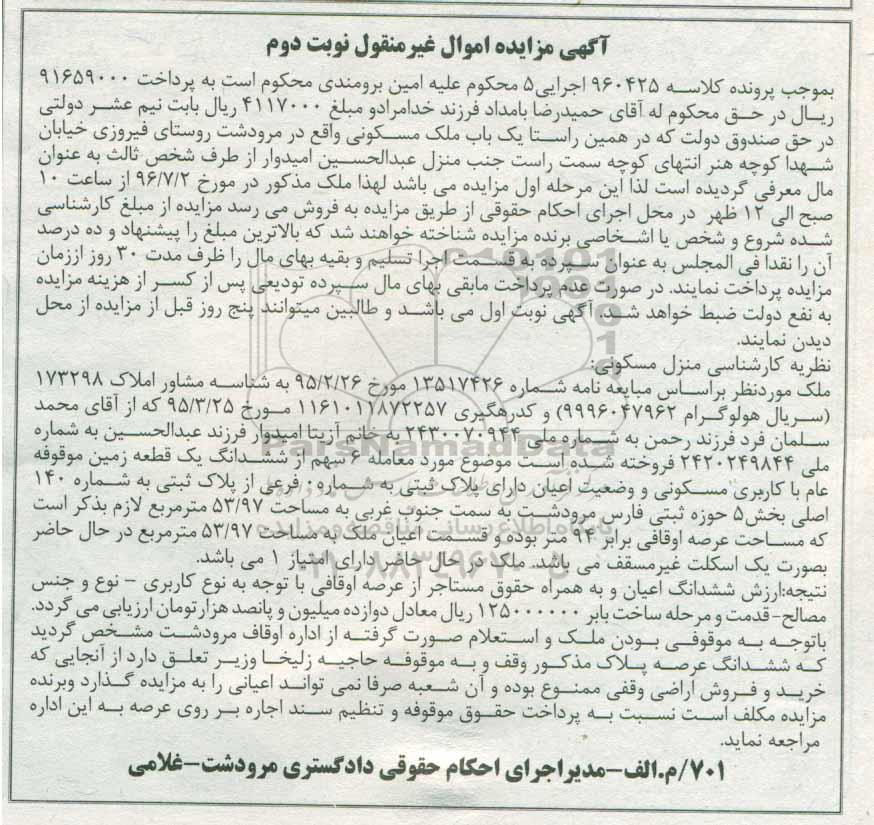 آگهی مزایده اموال غیرمنقول نوبت دوم
بموجب پرونده کلاسه ۹۶۰۴۲۵ اجرایی۵ محکوم علیه امین برومندی محکوم است به پرداخت ۹۱۶۵۹۰۰۰
ریال در حق محکوم له آقای حمیدرضا بامداد فرزند خدامرادو مبلغ ۴۱۱۷۰۰۰ ریال بابت نیم عشر دولتی
در حق صندوق دولت که در همین راستا یک باب ملک مسکونی واقع در مرودشت روستای فیروزی خیابان
شهدا کوچه هنر انتهای کوچه سمت راست جنب منزل عبدالحسین امیدوار از طرف شخص ثالث به عنوان
مال معرفی گردیده است لذا این مرحله اول مزایده می باشد لهذا ملک مذکور در مورخ ۹۶/۷/۲ از ساعت ۱۰
صبح الی ۱۲ ظهر در محل اجرای احکام حقوقی از طریق مزایده به فروش می رسد مزایده از مبلغ کارشناسی
شده شروع و شخص یا اشخاصی برنده مزایده شناخته خواهند شد که بالاترین مبلغ را پیشنهاد و ده درصد
آن را نقدا فی المجلس به عنوان سپرده به قسمت اجرا تسلیم و بقیه بهای مال را ظرف مدت ۳۰ روز اززمان
مزایده پرداخت نمایند. در صورت عدم پرداخت مابقی بهای مال سپرده تودیعی پس از کسر از هزینه مزایده
به نفع دولت ضبط خواهد شد. آگهی نوبت اول می باشد و طالبین میتوانند پنج روز قبل از مزایده از محل
دیدن نمایند.
نظریه کارشناسی منزل مسکونی:
ملک موردنظر براساس مبایعه نامه شماره ۱۳۵۱۷۴۲۶ مورخ ۹۵/۲/۲۶ به شناسه مشاور املاک ۱۷۳۲۹۸
(سریال هولوگرام ۹۹۹۶۰۴۷۹۶۲) و کدرهگیری ۱۱۶۱۰۱۱۸۷۲۲۵۷ مورخ ۹۵/۳/۲۵ که از آقای محمد
سلمان فرد فرزند رحمن به شماره ملی ۲۴۳۰۰۷۰۹۴۴ به خانم آزیتا امیدوار فرزند عبدالحسین به شماره
ملی ۲۴۲۰۲۴۹۸۴۴ فروخته شده است موضوع مورد معامله ۶ سهم از ششدانگ یک قطعه زمین موقوفه
عام با کاربری مسکونی و وضعیت اعیان دارای پلاک ثبتی به شماره: فرعی از پلاک ثبتی به شماره ۱۴۰
اصلی بخش۵ حوزه ثبتی فارس مرودشت به سمت جنوب غربی به مساحت ۵۳/۹۷ مترمربع لازم بذکر است
که مساحت عرصه اوقافی برابر ۹۴ متر بوده و قسمت اعیان ملک به مساحت ۵۳/۹۷ مترمربع در حال حاضر
بصورت یک اسکلت غیرمسقف می باشد. ملک در حال حاضر دارای امتیاز ۱ می باشد.
نتیجه:ارزش ششدانگ اعیان و به همراه حقوق مستاجر از عرصه اوقافی با توجه به نوع کاربری - نوع و جنس
مصالح-قدمت و مرحله ساخت بابر ۱۲۵۰۰۰۰۰۰ ریال معادل دوازده میلیون و پانصد هزار تومان ارزیابی می گردد.
باتوجه به موقوفی بودن ملک و استعلام صورت گرفته از اداره اوقاف مرودشت مشخص گردید
که ششدانگ عرصه پلاک مذکور وقف و به موقوفه حاجیه زلیخا وزیر تعلق دارد از آنجایی که
خرید و فروش اراضی وقفی ممنوع بوده و آن شعبه صرفا نمی تواند اعیانی را به مزایده گذارد وبرنده
مزایده مکلف است نسبت به پرداخت حقوق موقوفه و تنظیم سند اجاره بر روی عرصه به این اداره
مراجعه نماید.
۷۰۱/م.الف-مدیراجرای احکام حقوقی دادگستری مرودشت-غلامی
ParsNamadData